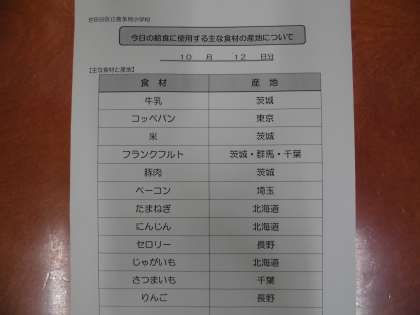 今日の給食に使用する主な食材の産地について
10 月 12 日分
【主な食材と産地】
食 材 産 地
牛乳 茨城
コッペパン 東京
米 茨城
フランクフルト 茨城・群馬・千葉
豚肉 茨城
ベーコン 埼玉
たまねぎ 北海道
にんじん 北海道
セロリー 長野
じゃがいも 北海道
さつまいも 千葉
りんご 長野